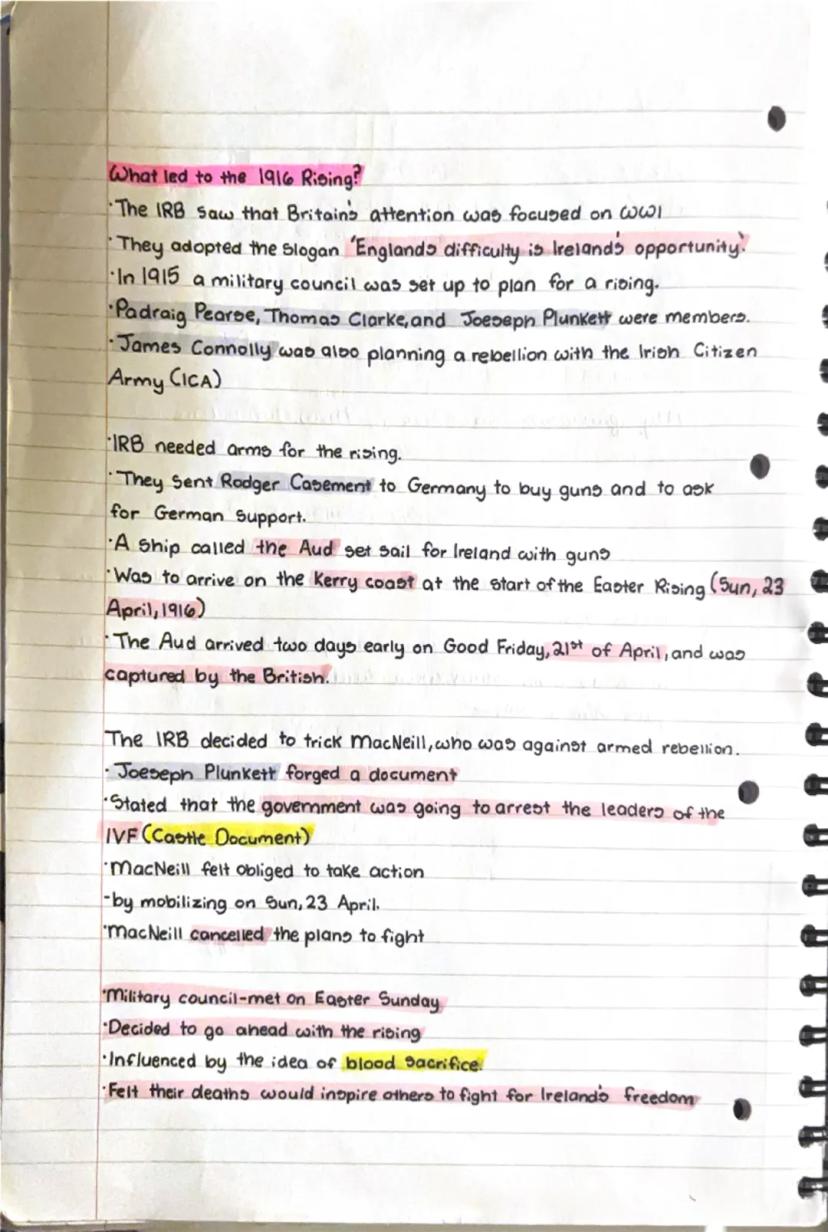 What led to the 1916 Rising?
·The IRB saw that Britain's attention was focused on WW1
·They adopted the slogan 'Englands difficulty is Ireland's opportunity.'
·In 1915 a military council was set up to plan for a rising.
·Padraig Pearse, Thomas Clarke, and Joeseph Plunkett were members.
·James Connolly was also planning a rebellion with the Irish Citizen
Army (ICA)
·IRB needed arms for the rising.
·They sent Rodger Casement to Germany to buy guns and to ask
for German support.
·A ship called the Aud set sail for Ireland with guns
·Was to arrive on the Kerry coast at the start of the Easter Rising (Sun, 23
April, 1916)
·The Aud arrived two days early on Good Friday, 21st of April, and was
captured by the British.
The IRB decided to trick MacNeill, who was against armed rebellion.
·Joeseph Plunkett forged a document
·Stated that the government was going to arrest the leaders of the
IVF (Castle Document)
·MacNeill felt obliged to take action
-by mobilizing on Sun, 23 April.
·MacNeill cancelled the plans to fight
·Military council-met on Easter Sunday
·Decided to go ahead with the rising
·Influenced by the idea of blood sacrifice.
·Felt their deaths would inspire others to fight for Ireland's freedom